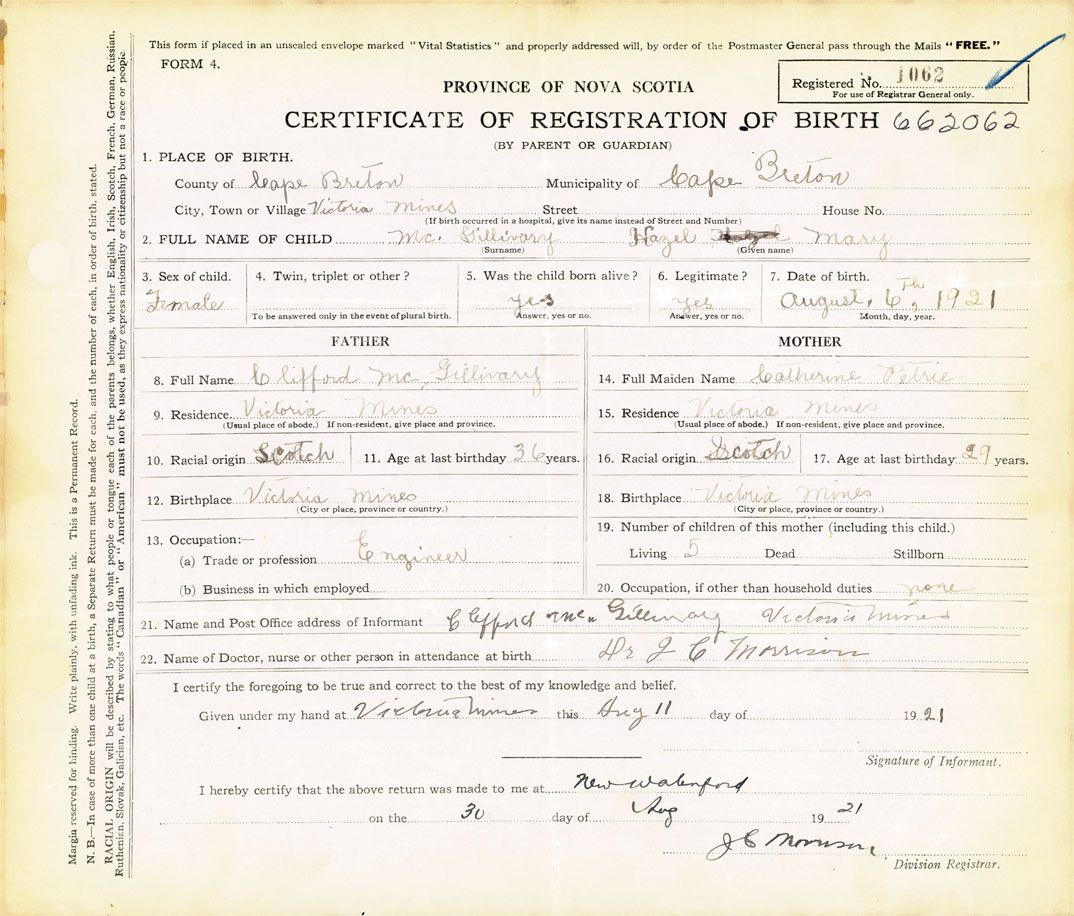 This form if placed in an unsealed envelope marked "Vital Statistics" and properly addressed will, by order of the Postmaster General pass through the Mails "FREE."
FORM 4.
Registered No. 1062
For use of Registrar General only.
PROVINCE OF NOVA SCOTIA
CERTIFICATE OF REGISTRATION OF BIRTH 662062
(BY PARENT OR GUARDIAN)
1. PLACE OF BIRTH.
County of Cape Breton Municipality of Cape Breton
City, Town or Village Victoria Mines Street House No.
(If birth occurred in a hospital, give its name instead of Street and Number)
2. FULL NAME OF CHILD Mc. Gillivary Hazel Mary
(Surname) (Given name)
3. Sex of child. 4. Twin, triplet or other? 5. Was the child born alive? 6. Legitimate? 7. Date of birth.
Female yes yes August, 6th, 1921
To be answered only in the event of plural birth. Answer, yes or no. Answer, yes or no. Month, day, year.
FATHER
8. Full Name Clifford Mc. Gillivary
9. Residence Victoria Mines
(Usual place of abode.) If non-resident, give place and province.
10. Racial origin Scotch 11. Age at last birthday 36 years.
12. Birthplace Victoria Mines
(City or place, province or country.)
13. Occupation:—
(a) Trade or profession Engineer
(b) Business in which employed
MOTHER
14. Full Maiden Name Catherine Petrie
15. Residence Victoria Mines
(Usual place of abode.) If non-resident, give place and province.
16. Racial origin Scotch 17. Age at last birthday 29 years.
18. Birthplace Victoria Mines
(City or place, province or country.)
19. Number of children of this mother (including this child.)
Living 5 Dead Stillborn
20. Occupation, if other than household duties none
21. Name and Post Office address of Informant Clifford Mc. Gillivary Victoria Mines
22. Name of Doctor, nurse or other person in attendance at birth Dr J C Morrison
I certify the foregoing to be true and correct to the best of my knowledge and belief.
Given under my hand at Victoria Mines this Aug 11 day of 1921
Signature of Informant.
I hereby certify that the above return was made to me at New Waterford
on the 30 day of Aug 1921
J C Morrison
Division Registrar.
Margin reserved for binding. Write plainly, with unfading ink. This is a Permanent Record.
N. B.—In case of more than one child at a birth, a Separate Return must be made for each, and the number of each, in order of birth, stated.
RACIAL ORIGIN will be described by stating to what people or tongue each of the parents belongs, whether English, Irish, Scotch, French, German, Russian,
Ruthenian, Slovak, Galician, etc. The words "Canadian" or "American" must not be used, as they express nationality or citizenship but not a race or people.